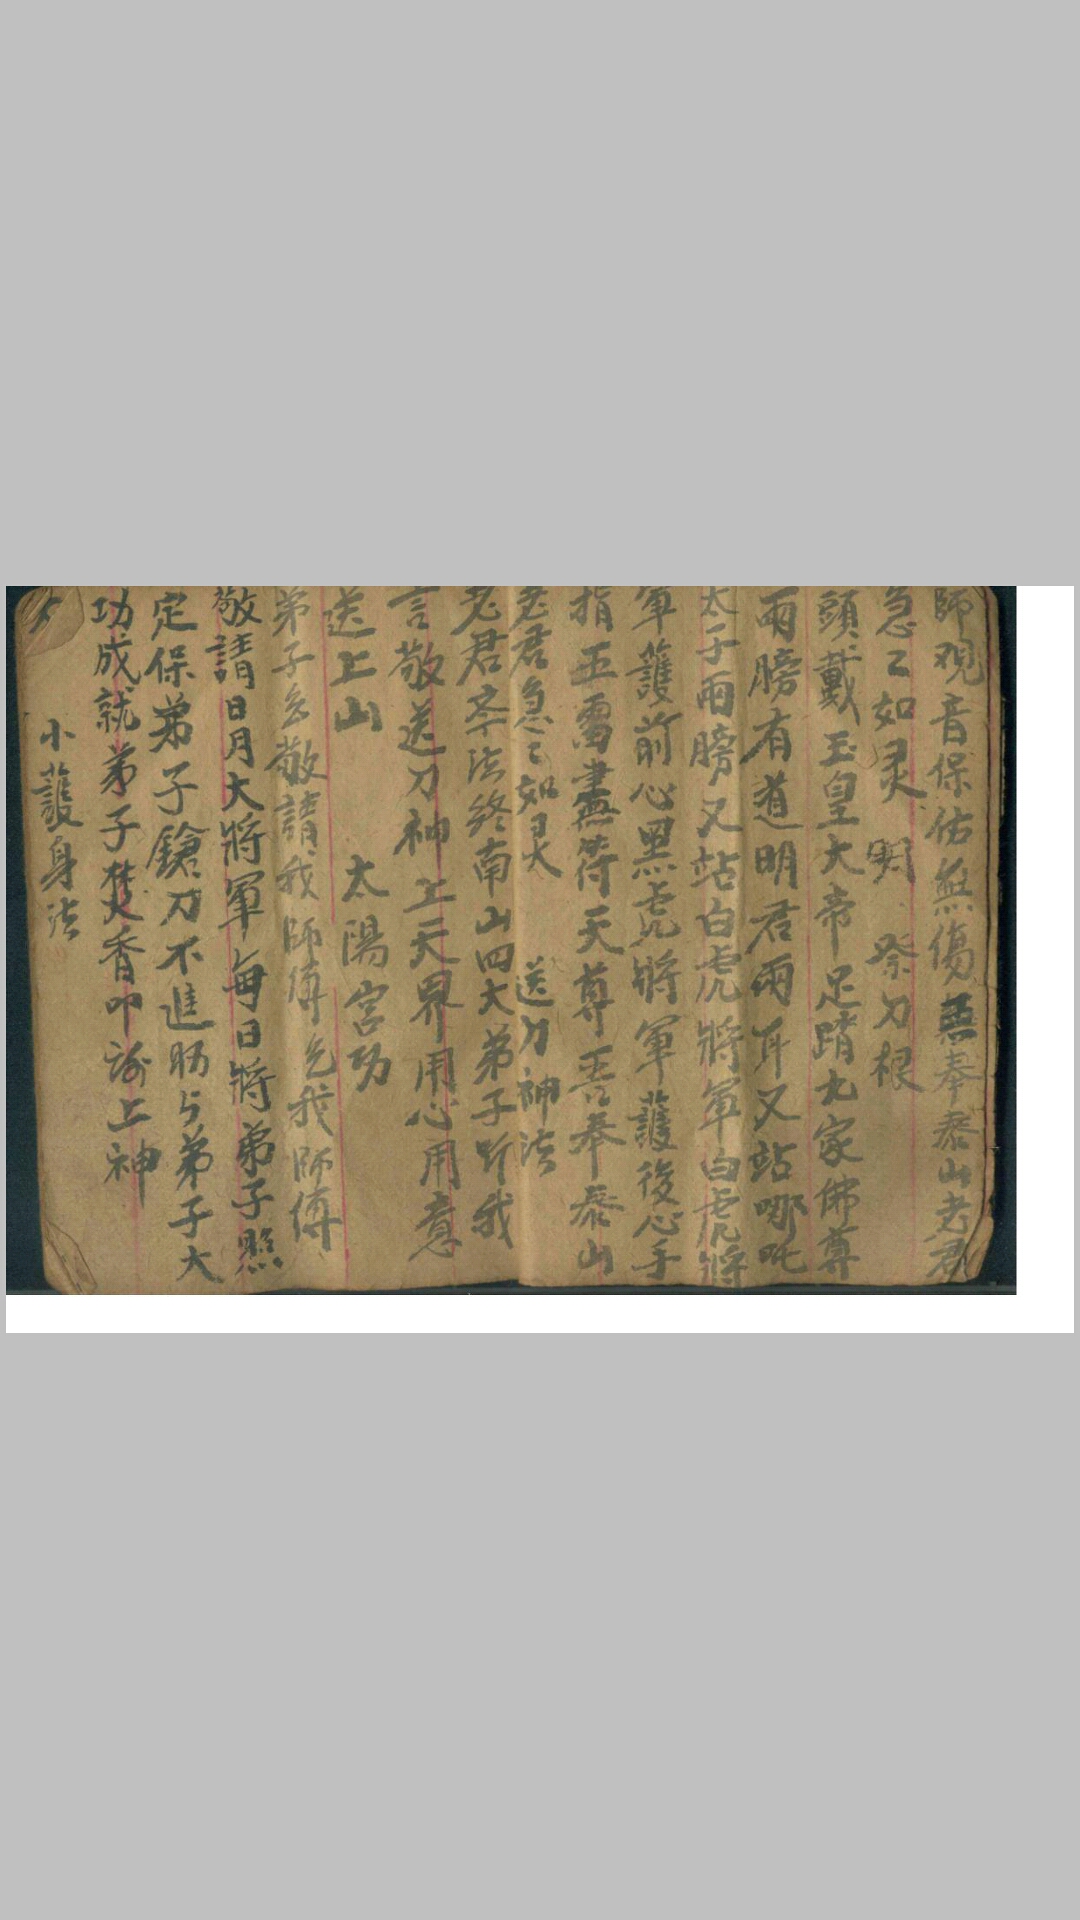 師观音保佑無傷吾奉泰山老君
急〻如灵 明 祭刀根
頭戴玉皇大帝足踏九家佛尊
兩膀有道明君兩耳又站哪吒
太子兩膀又站白虎將軍白虎將
軍護前心黑虎將軍護後心手
指五雷 符天尊吾奉泰山
老君急〻如灵 送刀神法
老君 法終南山四大弟子听我
言敬送刀神上天界用心用意
送上山 太陽宮功
弟子 敬請我師傅 我師傅
敬請日月大將軍每日將弟子照
定保弟子鎗刀不進 与弟子大
功成就弟子焚香叩 上神
小護身法